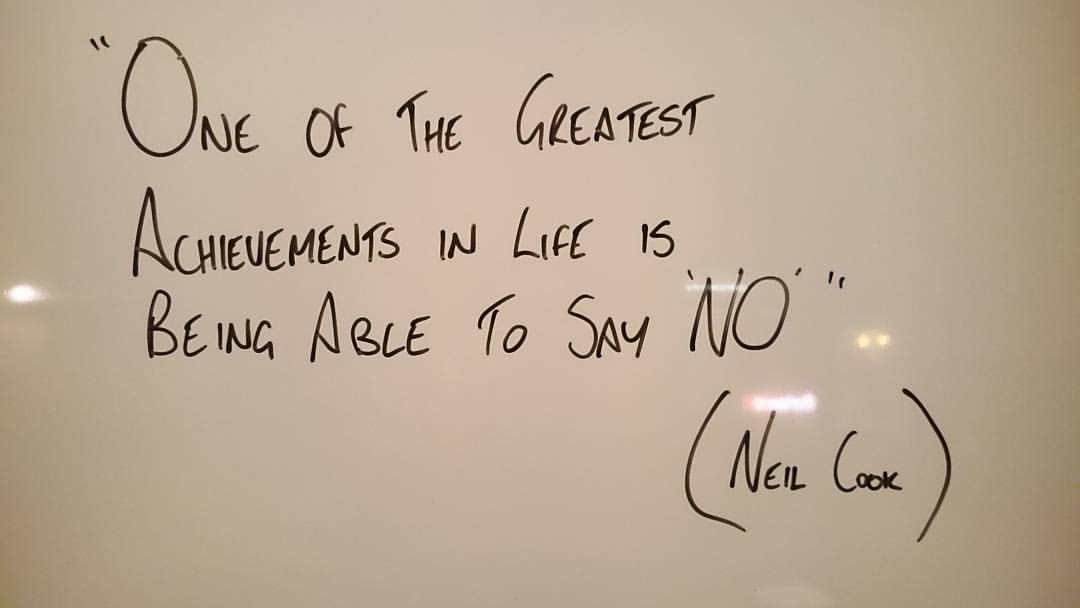 "One of The Greatest
Achievements in Life is
Being Able To Say 'NO'"
(Neil Cook)